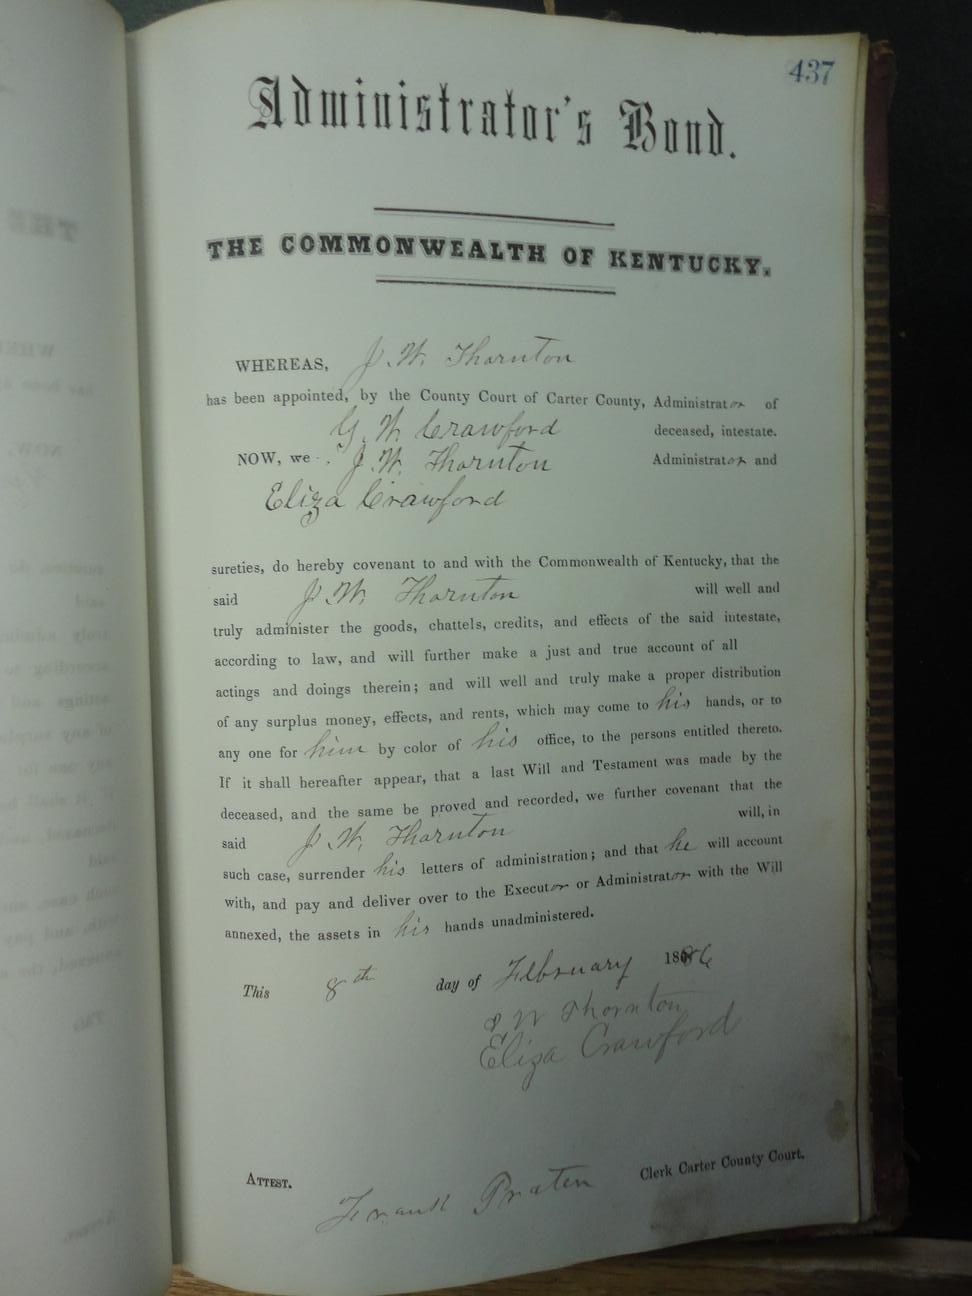 437
Administrator's Bond.
THE COMMONWEALTH OF KENTUCKY.
WHEREAS, J. W. Thornton
has been appointed, by the County Court of Carter County, Administrator of
G. W. Crawford deceased, intestate.
NOW, we J. W. Thornton Administrator and
Eliza Crawford
sureties, do hereby covenant to and with the Commonwealth of Kentucky, that the
said J. W. Thornton will well and
truly administer the goods, chattels, credits, and effects of the said intestate,
according to law, and will further make a just and true account of all
actings and doings therein; and will well and truly make a proper distribution
of any surplus money, effects, and rents, which may come to his hands, or to
any one for him by color of his office, to the persons entitled thereto.
If it shall hereafter appear, that a last Will and Testament was made by the
deceased, and the same be proved and recorded, we further covenant that the
said J. W. Thornton will, in
such case, surrender his letters of administration; and that he will account
with, and pay and deliver over to the Executor or Administrator with the Will
annexed, the assets in his hands unadministered.
This 8th day of February 1886
J W Thornton
Eliza Crawford
ATTEST.
Frank Praten Clerk Carter County Court.